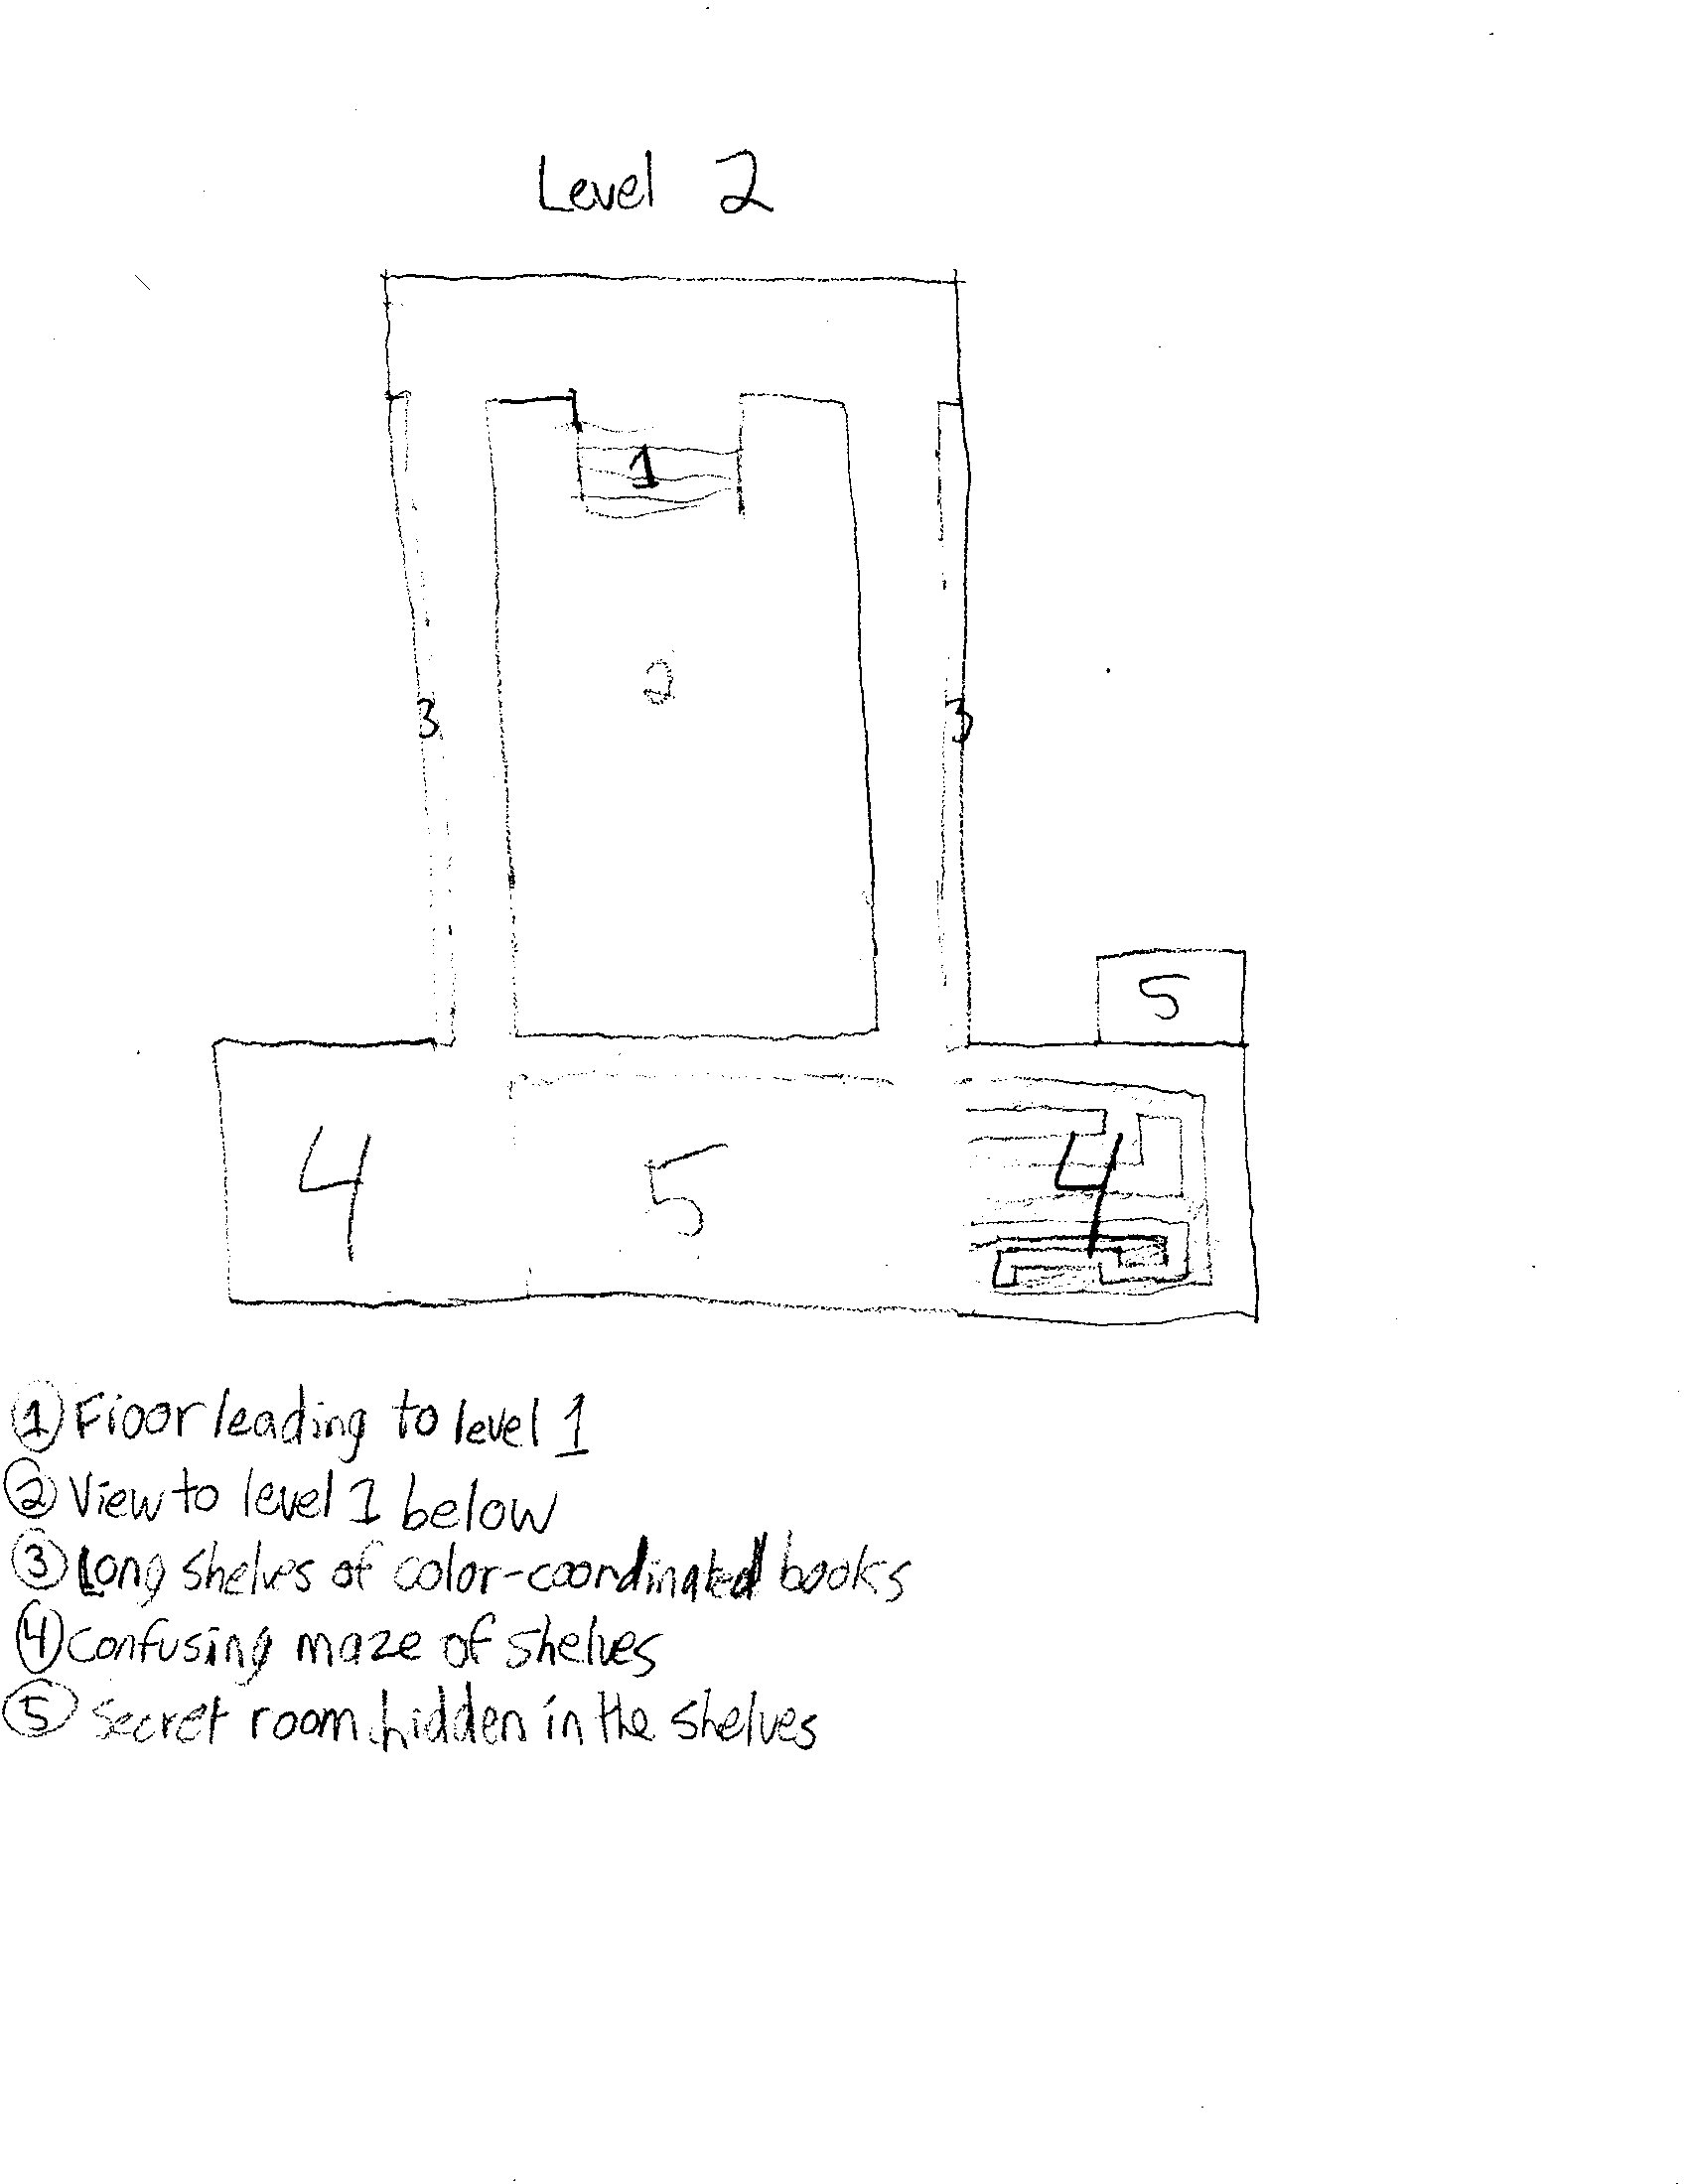 Level 2
1
2
3 3
5
4 5 4
① Floor leading to level 1
② View to level 1 below
③ Long shelves of color-coordinated books
④ confusing maze of shelves
⑤ Secret room hidden in the shelves